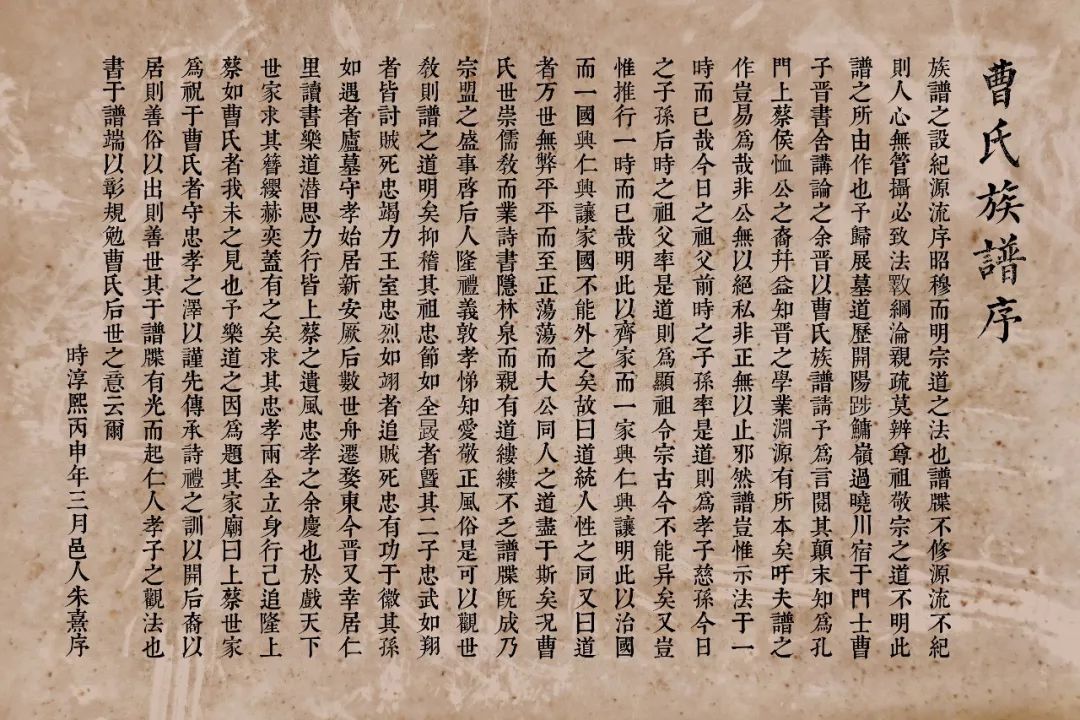 曹氏族譜序
族譜之設紀源流序昭穆而明宗道之法也譜牒不修源流不紀
則人心無管攝必致法斁綱淪親疏莫辨尊祖敬宗之道不明此
譜之所由作也予歸展墓道歷開陽陟鱅嶺過曉川宿于門士曹
子晋書舍講論之余晋以曹氏族譜請予為言閱其顛末知為孔
門上蔡侯恤公之裔幷益知晋之學業淵源有所本矣吁夫譜之
作豈易為哉非公無以絕私非正無以止邪然譜豈惟示法于一
時而已哉今日之祖父前時之子孫率是道則為孝子慈孫今日
之子孫后時之祖父率是道則為顯祖令宗古今不能异矣又豈
惟推行一時而已哉明此以齊家而一家興仁興讓明此以治國
而一國興仁興讓家國不能外之矣故曰道統人性之同又曰道
者万世無弊平平而至正蕩蕩而大公同人之道盡于斯矣况曹
氏世崇儒教而業詩書隱林泉而親有道縷縷不乏譜牒旣成乃
宗盟之盛事啓后人隆禮義敦孝悌知愛敬正風俗是可以觀世
教則譜之道明矣抑稽其祖忠節如全晸者暨其二子忠武如翔
者皆討賊死忠竭力王室忠烈如翊者追賊死忠有功于徽其孫
如遇者廬墓守孝始居新安厥后數世舟遷婺東今晋又幸居仁
里讀書樂道潜思力行皆上蔡之遺風忠孝之余慶也於戲天下
世家求其簪纓赫奕蓋有之矣求其忠孝兩全立身行己追隆上
蔡如曹氏者我未之見也予樂道之因為題其家廟曰上蔡世家
為祝于曹氏者守忠孝之澤以謹先傳承詩禮之訓以開后裔以
居則善俗以出則善世其于譜牒有光而起仁人孝子之觀法也
書于譜端以彰規勉曹氏后世之意云爾
時淳熙丙申年三月邑人朱熹序